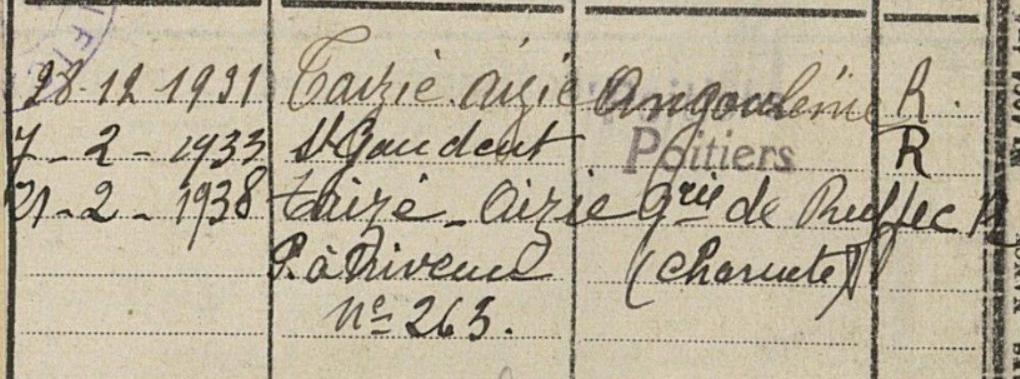 28-12-1931 Taizié. Aizié Angoulême R.
7-2-1933 St Gaudent Poitiers R
21-2-1938 Taizé-Aizie Grie de Ruffec R
P. à Niveau (Charente)
n° 263.